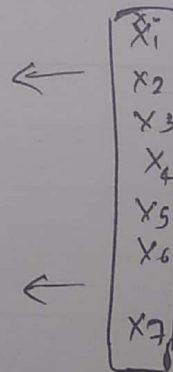 X₁
X₂
X₃
X₄
X₅
X₆
X₇